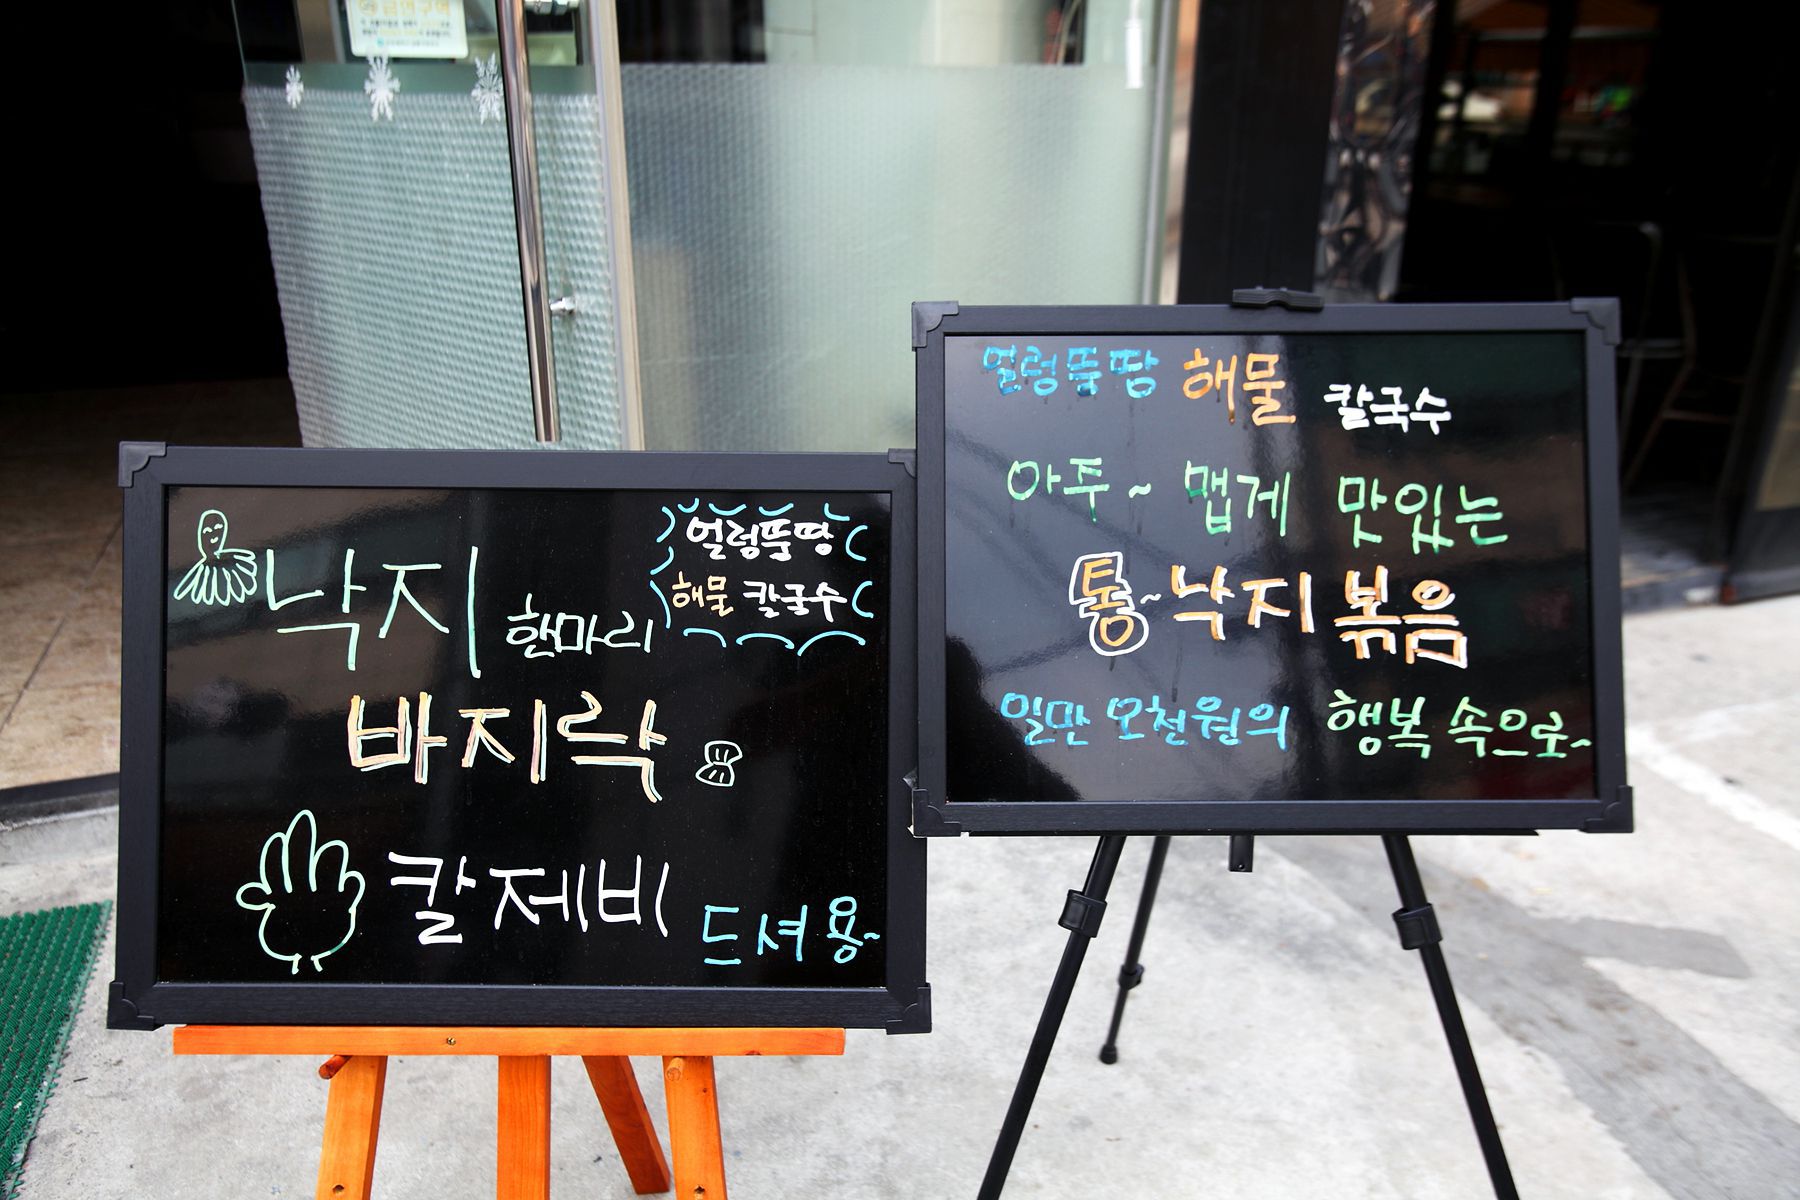 금연구역
얼렁뚱땅
해물 칼국수
낙지 한마리
바지락
칼제비
드셔용~
얼렁뚱땅 해물 칼국수
아주~ 맵게 맛있는
통~낙지 볶음
일만 오천원의 행복 속으로~